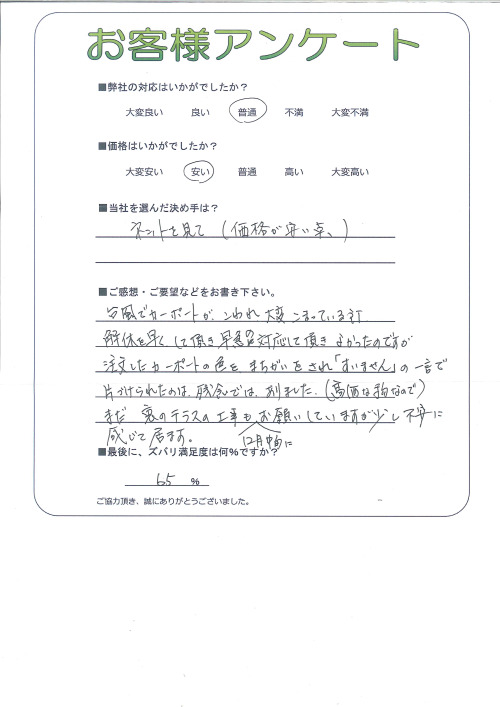 お客様アンケート
■弊社の対応はいかがでしたか？
大変良い 良い 普通 不満 大変不満
■価格はいかがでしたか？
大変安い 安い 普通 高い 大変高い
■当社を選んだ決め手は？
ネットを見て（価格が安い事、）
■ご感想・ご要望などをお書き下さい。
台風でカーポートが、こわれ大変こまっている時
解体を早くして頂き早急に対応して頂きよかったのですが
注文したカーポートの色をまちがいをされ「すいません」の一言で
片づけられたのは、残念では、ありました。（高価な物なので）
まだ裏のテラスの工事もお願いしていますが少し不安に
感じて居ます。 12月中旬に
■最後に、ズバリ満足度は何％ですか？
65 ％
ご協力頂き、誠にありがとうございました。